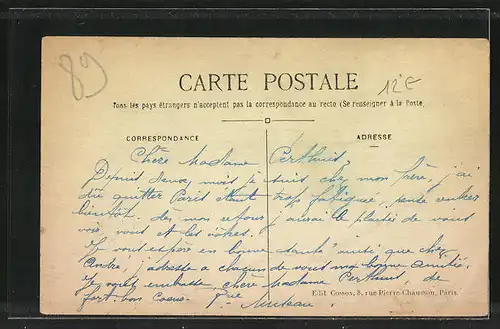 89
12 E
CARTE POSTALE
Tous les pays étrangers n'acceptent pas la correspondance au recto (Se renseigner à la Poste)
CORRESPONDANCE
ADRESSE
Chère Madame Perthuis,
Depuis deux mois je suis chez mon frère, j'ai
dû quitter Paris étant trop fatiguée, pense rentrer
bientôt. dès mon retour j'aurai le plaisir de vous
voir, vous et les vôtres.
Je vous espère en bonne santé ainsi que chez
André, j'adresse à chacun de vous ma bonne amitié.
Je vous embrasse, chère Madame Perthuis, de
fort bon Coeur.
Edit. Cosson, 8, rue Pierre-Chausson, Paris